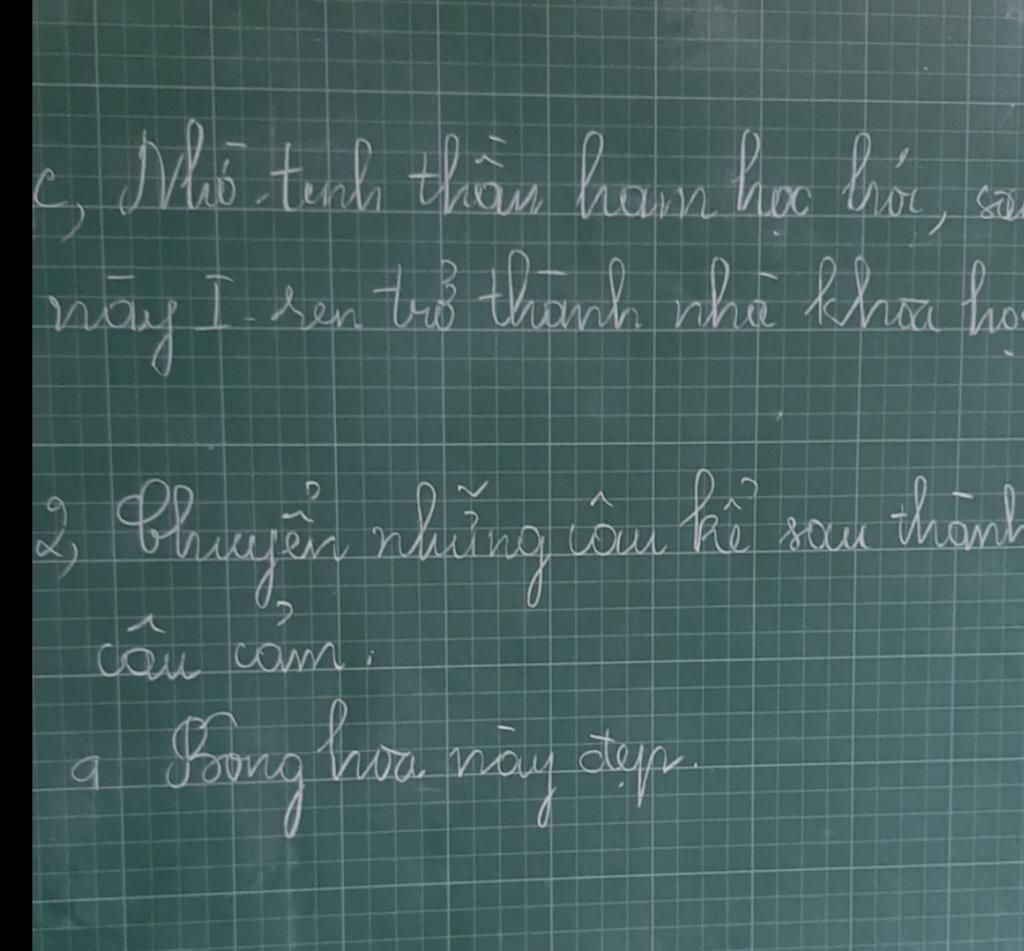 c, Nhờ tinh thần ham học hỏi, sau
này I-ren trở thành nhà khoa họ
2, Chuyển những câu kể sau thành
câu cảm.
a Bông hoa này đẹp.